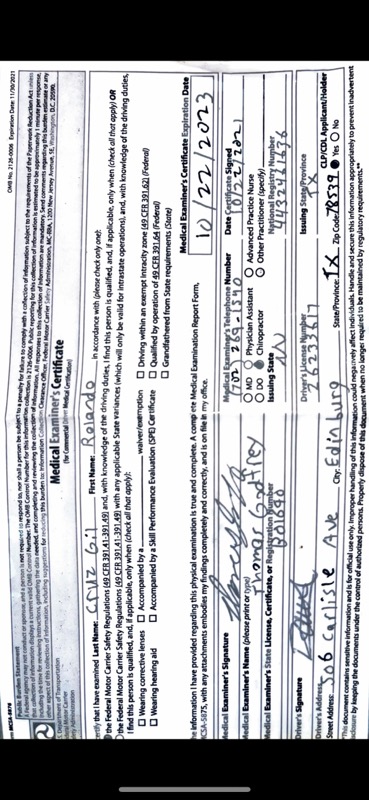 Form MCSA-5876
OMB No. 2126-0006 Expiration Date: 11/30/2021
Public Burden Statement
A Federal agency may not conduct or sponsor, and a person is not required to respond to, nor shall a person be subject to a penalty for failure to comply with a collection of information subject to the requirements of the Paperwork Reduction Act unless
that collection of information displays a current valid OMB Control Number. The OMB Control Number for this information collection is 2126-0006. Public reporting for this collection of information is estimated to be approximately 1 minute per response,
including the time for reviewing instructions, gathering the data needed, and completing and reviewing the collection of information. All responses to this collection of information are mandatory. Send comments regarding this burden estimate or any
other aspect of this collection of information, including suggestions for reducing this burden to: Information Collection Clearance Officer, Federal Motor Carrier Safety Administration, MC-RRA, 1200 New Jersey Avenue, SE, Washington, D.C. 20590.
Department of Transportation
Motor Carrier
Administration
Medical Examiner's Certificate
(for Commercial Driver Medical Certification)
certify that I have examined Last Name: Cruz Gil First Name: Rolando in accordance with (please check only one):
the Federal Motor Carrier Safety Regulations (49 CFR 391.41-391.49) and, with knowledge of the driving duties, I find this person is qualified, and, if applicable, only when (check all that apply) OR
the Federal Motor Carrier Safety Regulations (49 CFR 391.41-391.49) with any applicable State variances (which will only be valid for intrastate operations), and, with knowledge of the driving duties,
I find this person is qualified, and, if applicable, only when (check all that apply):
Wearing corrective lenses Accompanied by a waiver/exemption Driving within an exempt intracity zone (49 CFR 391.62) (Federal)
Wearing hearing aid Accompanied by a Skill Performance Evaluation (SPE) Certificate Qualified by operation of 49 CFR 391.64 (Federal)
Grandfathered from State requirements (State)
Medical Examiner's Certificate Expiration Date
10/22/2023
The information I have provided regarding this physical examination is true and complete. A complete Medical Examination Report Form,
MCSA-5875, with any attachments embodies my findings completely and correctly, and is on file in my office.
Medical Examiner's Signature Medical Examiner's Telephone Number Date Certificate Signed
10/22/2021
Medical Examiner's Name (please print or type)
Thomas Godfrey
MD Physician Assistant Advanced Practice Nurse
DO Chiropractor Other Practitioner (specify)
Medical Examiner's State License, Certificate, or Registration Number Issuing State National Registry Number
4432461636
Driver's Signature Driver's License Number Issuing State/Province
26233617 TX
Driver's Address
Street Address: 3206 Carlisle Ave City: Edinburg State/Province: TX Zip Code: 78539
CLP/CDL Applicant/Holder
Yes No
This document contains sensitive information and is for official use only. Improper handling of this information could negatively affect individuals. Handle and secure this information appropriately to prevent inadvertent
disclosure by keeping the documents under the control of authorized persons. Properly dispose of this document when no longer required to be maintained by regulatory requirements.